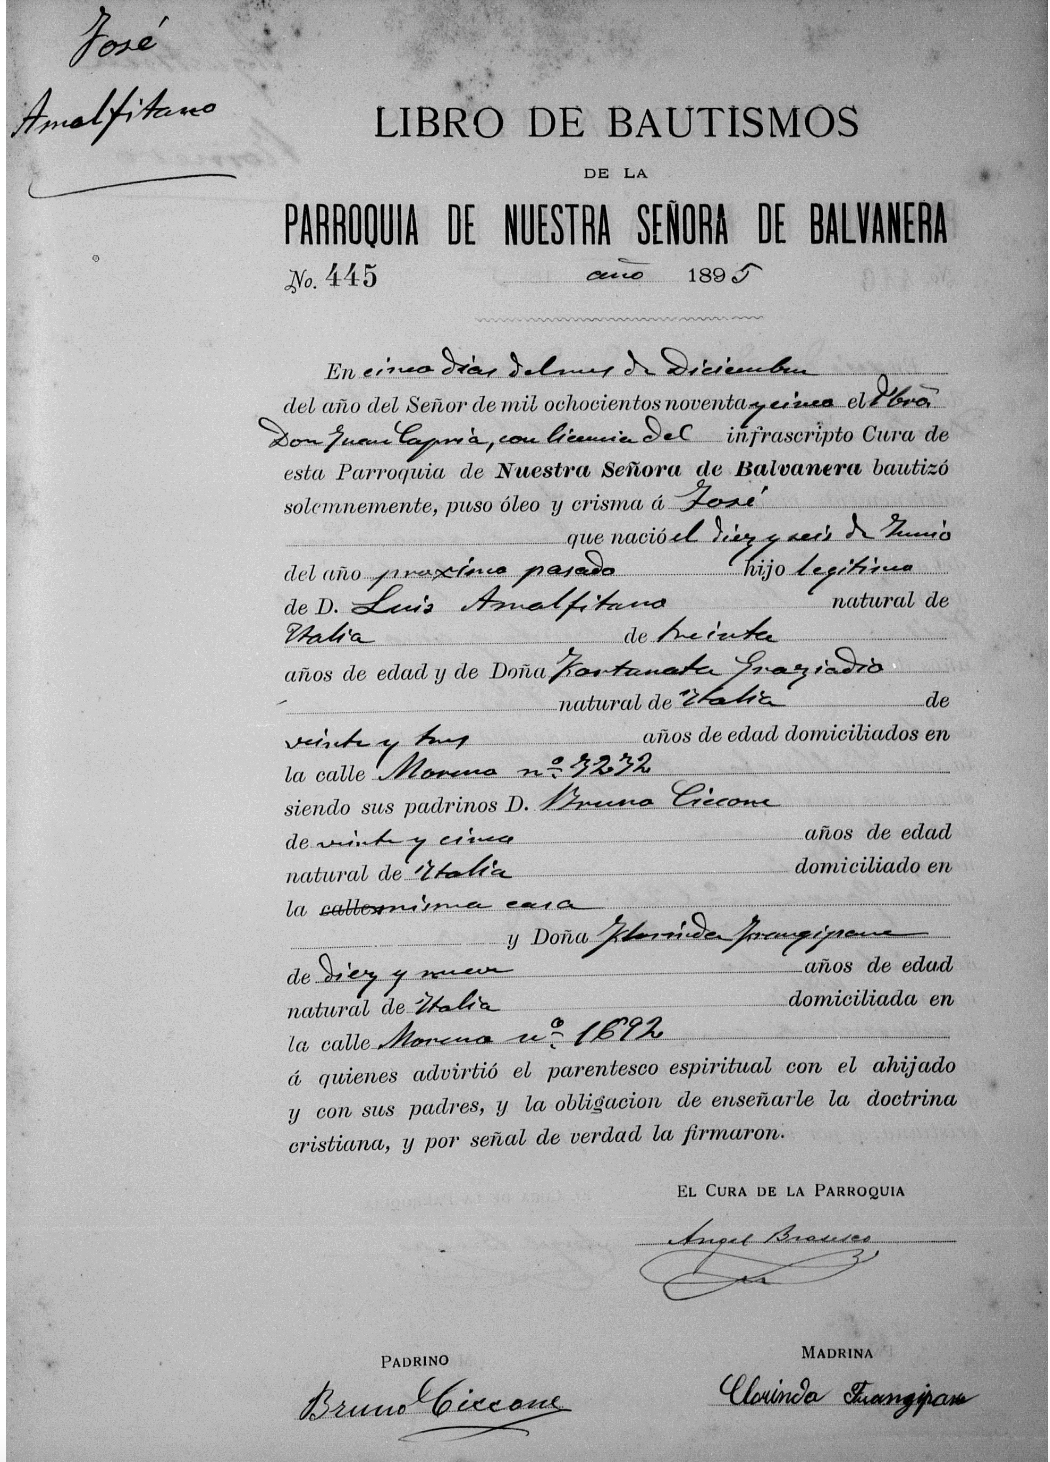 José
Amalfitano
LIBRO DE BAUTISMOS
DE LA
PARROQUIA DE NUESTRA SEÑORA DE BALVANERA
No. 445 año 1895
En cinco dias del mes de Diciembre
del año del Señor de mil ochocientos noventa y cinco el Pbro
Don Juan Capria, con licencia del infrascripto Cura de
esta Parroquia de Nuestra Señora de Balvanera bautizó
solemnemente, puso óleo y crisma á José
que nació el diez y seis de Junio
del año proximo pasado hijo legitimo
de D. Luis Amalfitano natural de
Italia de treinta
años de edad y de Doña Fortunata Graziadio
natural de Italia de
veinte y tres años de edad domiciliados en
la calle Moreno nº 3232
siendo sus padrinos D. Bruno Ciccone
de veinte y cinco años de edad
natural de Italia domiciliado en
la calle misma casa
y Doña Florinda Frangipane
de diez y nueve años de edad
natural de Italia domiciliada en
la calle Moreno nº 1692
á quienes advirtió el parentesco espiritual con el ahijado
y con sus padres, y la obligacion de enseñarle la doctrina
cristiana, y por señal de verdad la firmaron.
EL CURA DE LA PARROQUIA
Angel Brasesco
PADRINO
MADRINA
Bruno Ciccone
Clorinda Frangipane